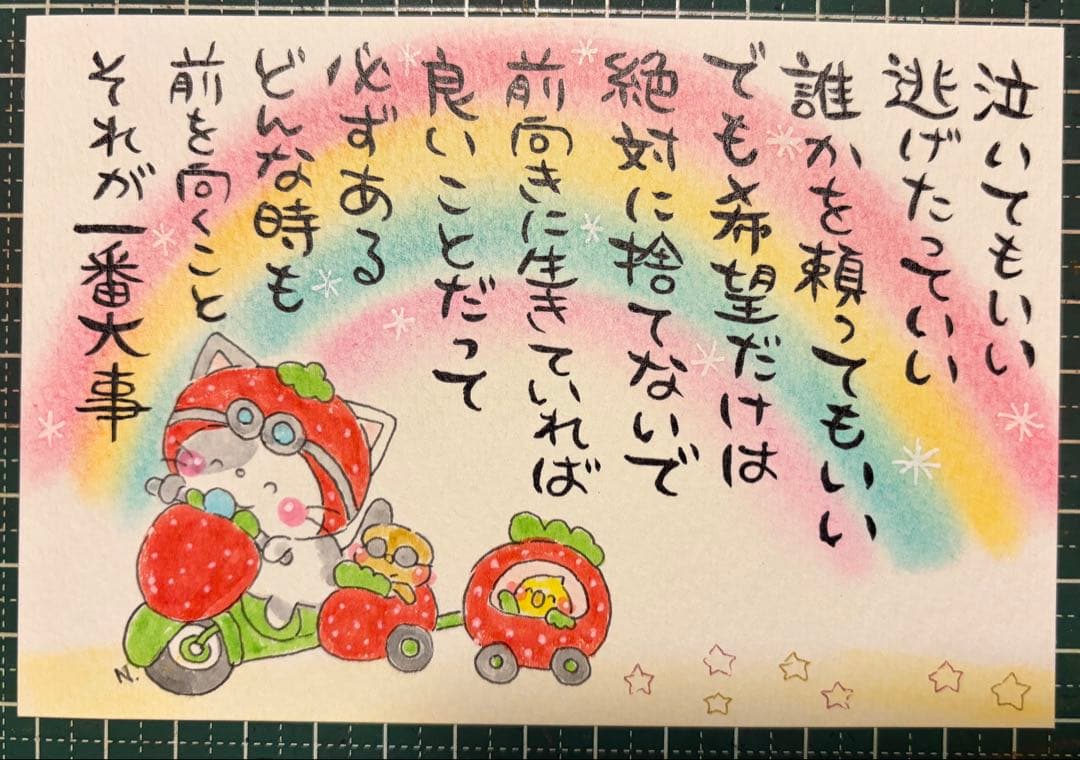 泣いてもいい
逃げたっていい
誰かを頼ってもいい
でも希望だけは
絶対に捨てないで
前向きに生きていれば
良いことだって
必ずある
どんな時も
前を向くこと
それが一番大事
N.